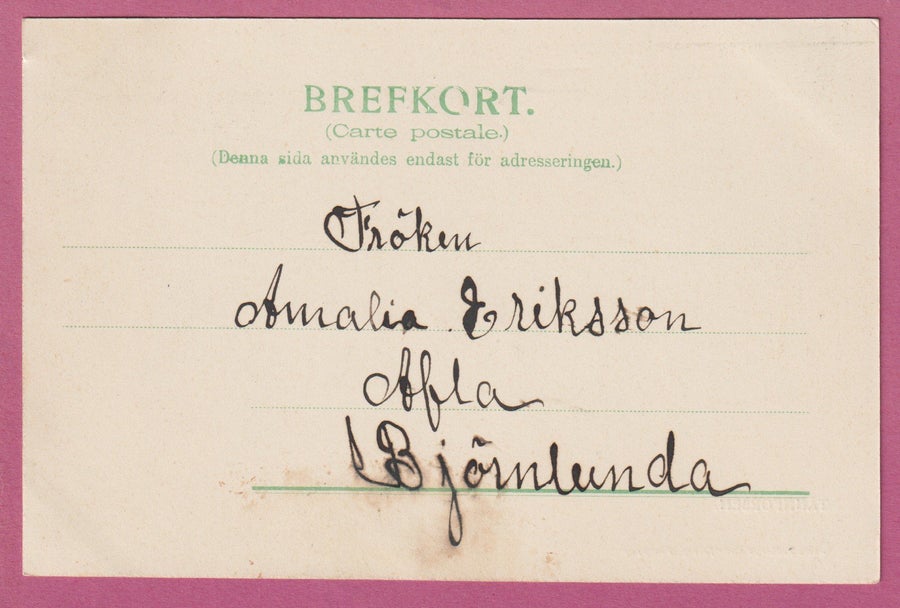 BREFKORT.
(Carte postale.)
(Denna sida användes endast för adresseringen.)
Fröken
Amalia Eriksson
Afla
Björnlunda